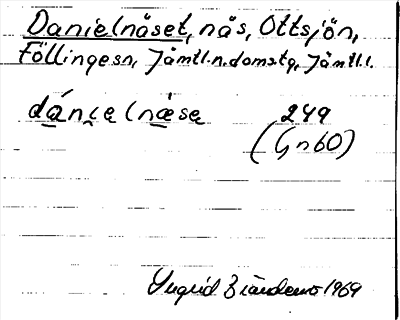 Danielnäset, näs, Ottsjön,
Föllingesn, Jämtl.n.domstg, Jämtl.l.
dánielnæse 249
(Gn 60)
Ingrid 1969